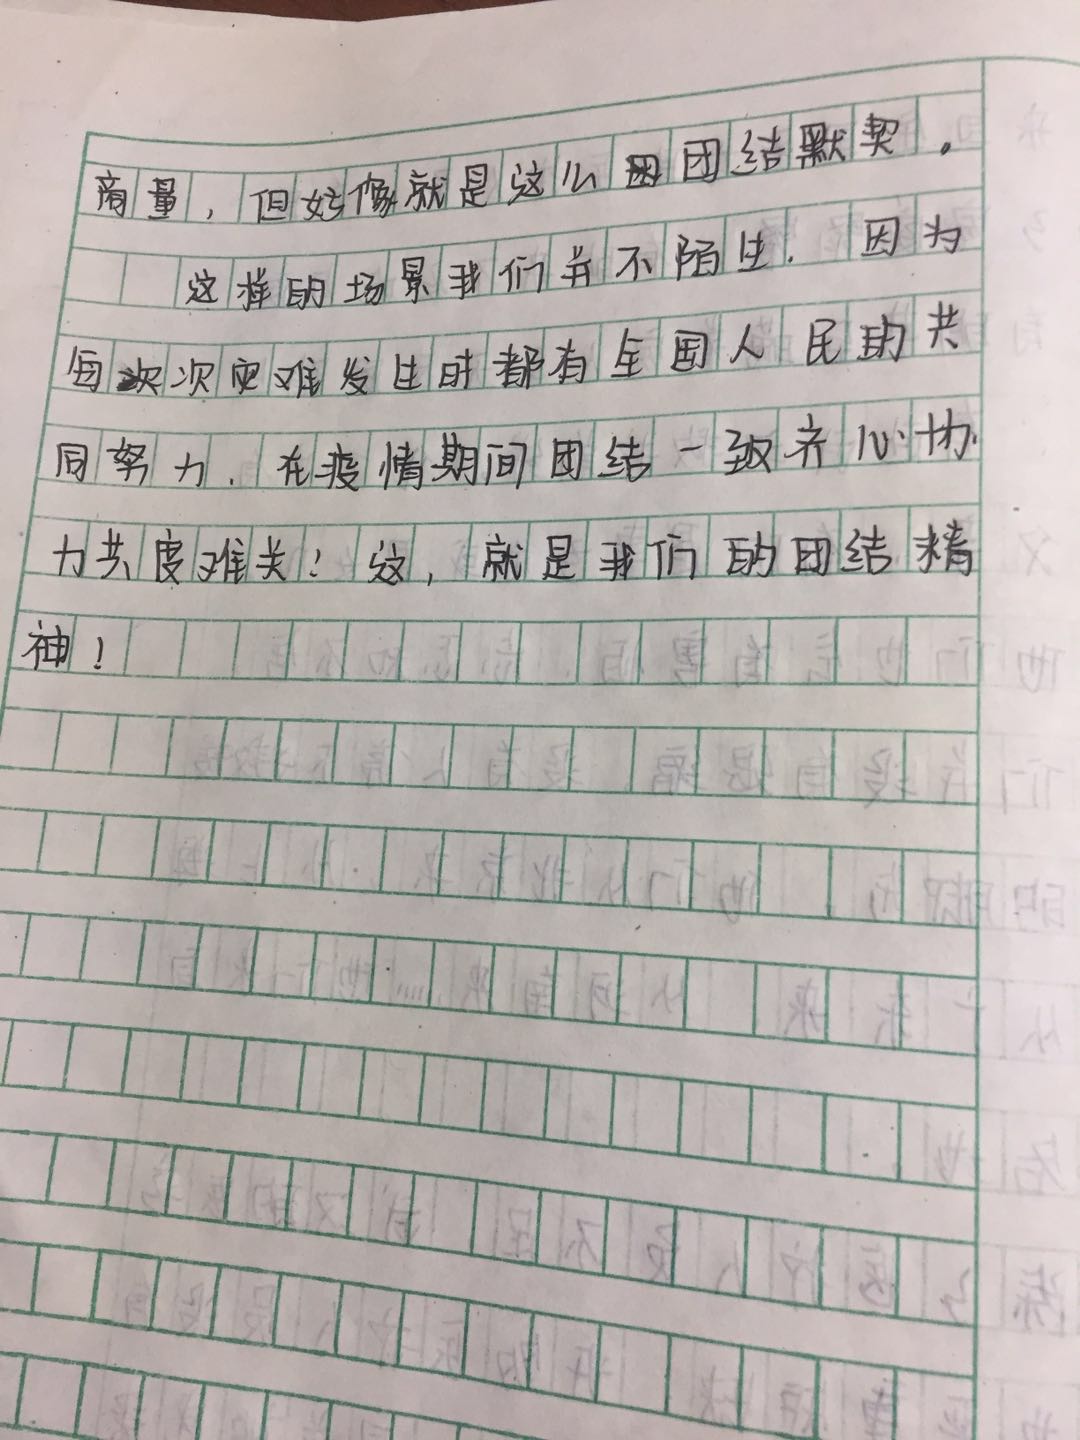 商量，但好像就是这么团结默契。
这样的场景我们并不陌生．因为
每次次灾难发生时都有全国人民的共
同努力．在疫情期间团结一致齐心协
力共度难关！这，就是我们的团结精
神！